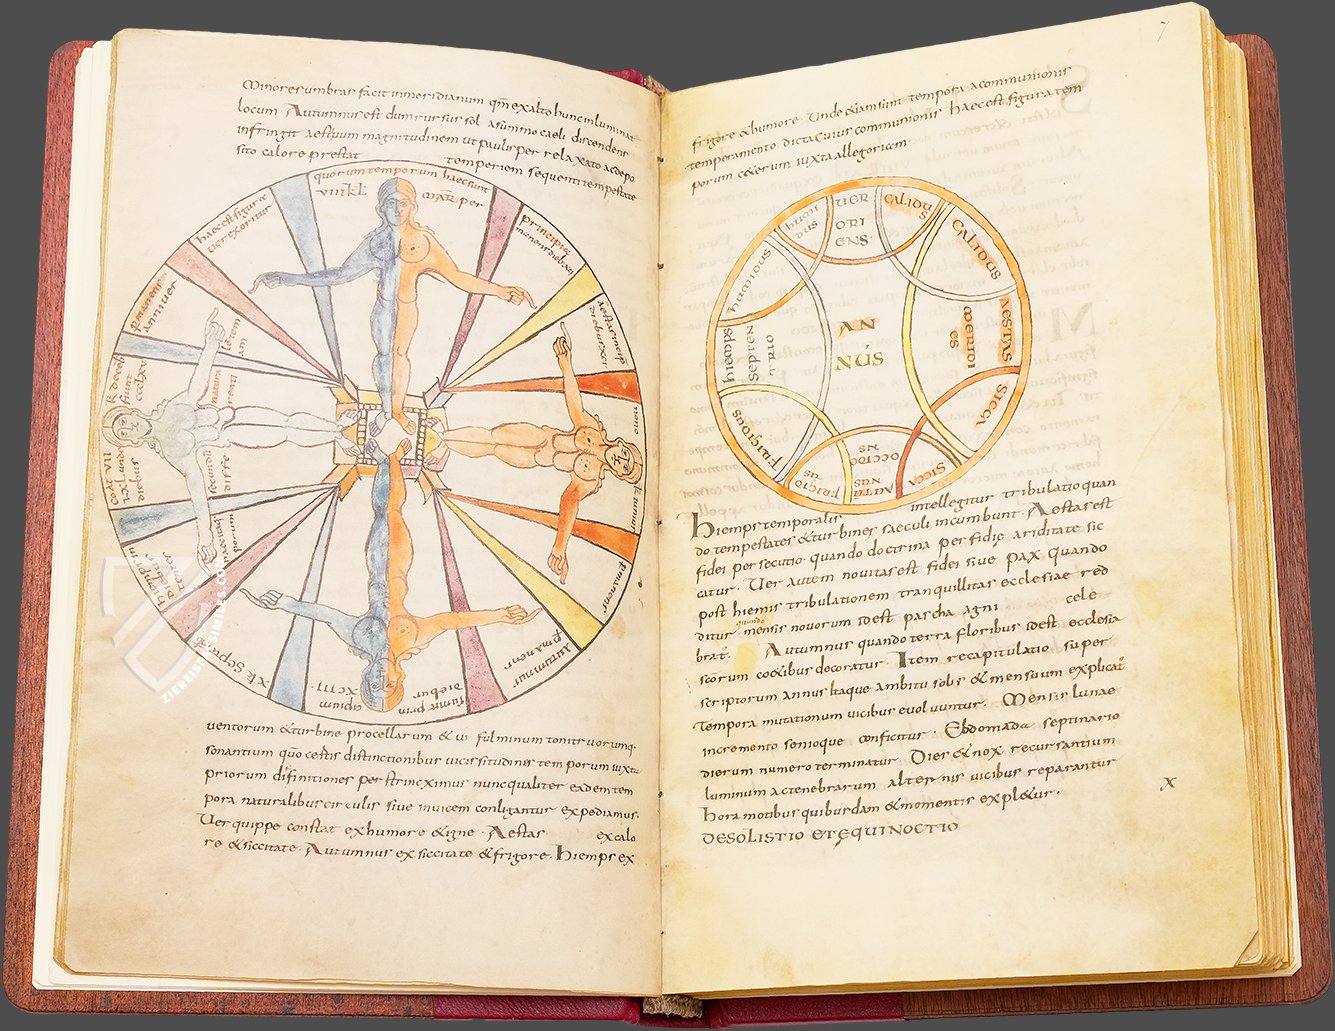 Minores umbras facit in meridianum qm ex alto hunc inluminat
locum Autumnus est dum rursus sol a summo caeli discendens
infringit aestuum magnitudinem ut paulisper relaxato ac depo
sito calore prestat temperiem sequenti tempestate
quorum temporum haec sunt
VIII kl
mar per
haec est figura
Uer exoritur
principia
aestas incip
diebus XCI
p manens
anniuer
autumnus
p manens
sumit prin
cipium
diebus
XCIII
XK Septb
hiemps in
uentorum & turbine procellarum & ui fulminum tonitruorumq.
sonantium quo certis distinctionibus uicissitudines temporum iuxta
priorum difinitiones perstrinximus nunc qualiter eadem tem
pora naturalibus circulis siue inuicem conligantur expediamus.
Uer quippe constat ex humore & igne Aestas ex calo
re & siccitate. Autumnus ex siccitate & frigore. hiemps ex
7
frigore & humore. Unde & iam sunt tempora a communionis
temperamento dicta Cuius communionis haec est figura tem
porum ceterum iuxta allegoricam
humi
dus
UER
ORI
ENS
calidu
s
calidus
humidus
AESTAS
meridi
es
hiemps
septen
trio
AN
NÚS
sicca
frigidus
frigid
us
AUTU
NS
OCCIDE
NS
sicca
hiemps temporalis intellegitur tribulatio quan
do tempestates & turbines saeculi incumbunt. Aestas est
fidei persecutio quando doctrina perfidię ariditate sic
catur. Uer autem nouitas est fidei siue pax quando
post hiemis tribulationem tranquillitas ecclesiae red
ditur. quando mensis nouorum idest pascha agni cele
brat. Autumnus quando terra floribus idest ecclesia
scorum coetibus decoratur. Item recapitulatio super
scriptorum annus itaque ambitu solis & mensuum explicat
tempora mutationum uicibus euoluuntur. Mensis lunae
incremento senioque conficitur. Ebdomada septinario
dierum numero terminatur Dies & nox recursantium
luminum ac tenebrarum alternis uicibus reparantur
hora motibus quibusdam & momentis expletur.
x
DE SOLISTITIO ET ĘQUINOCTIO